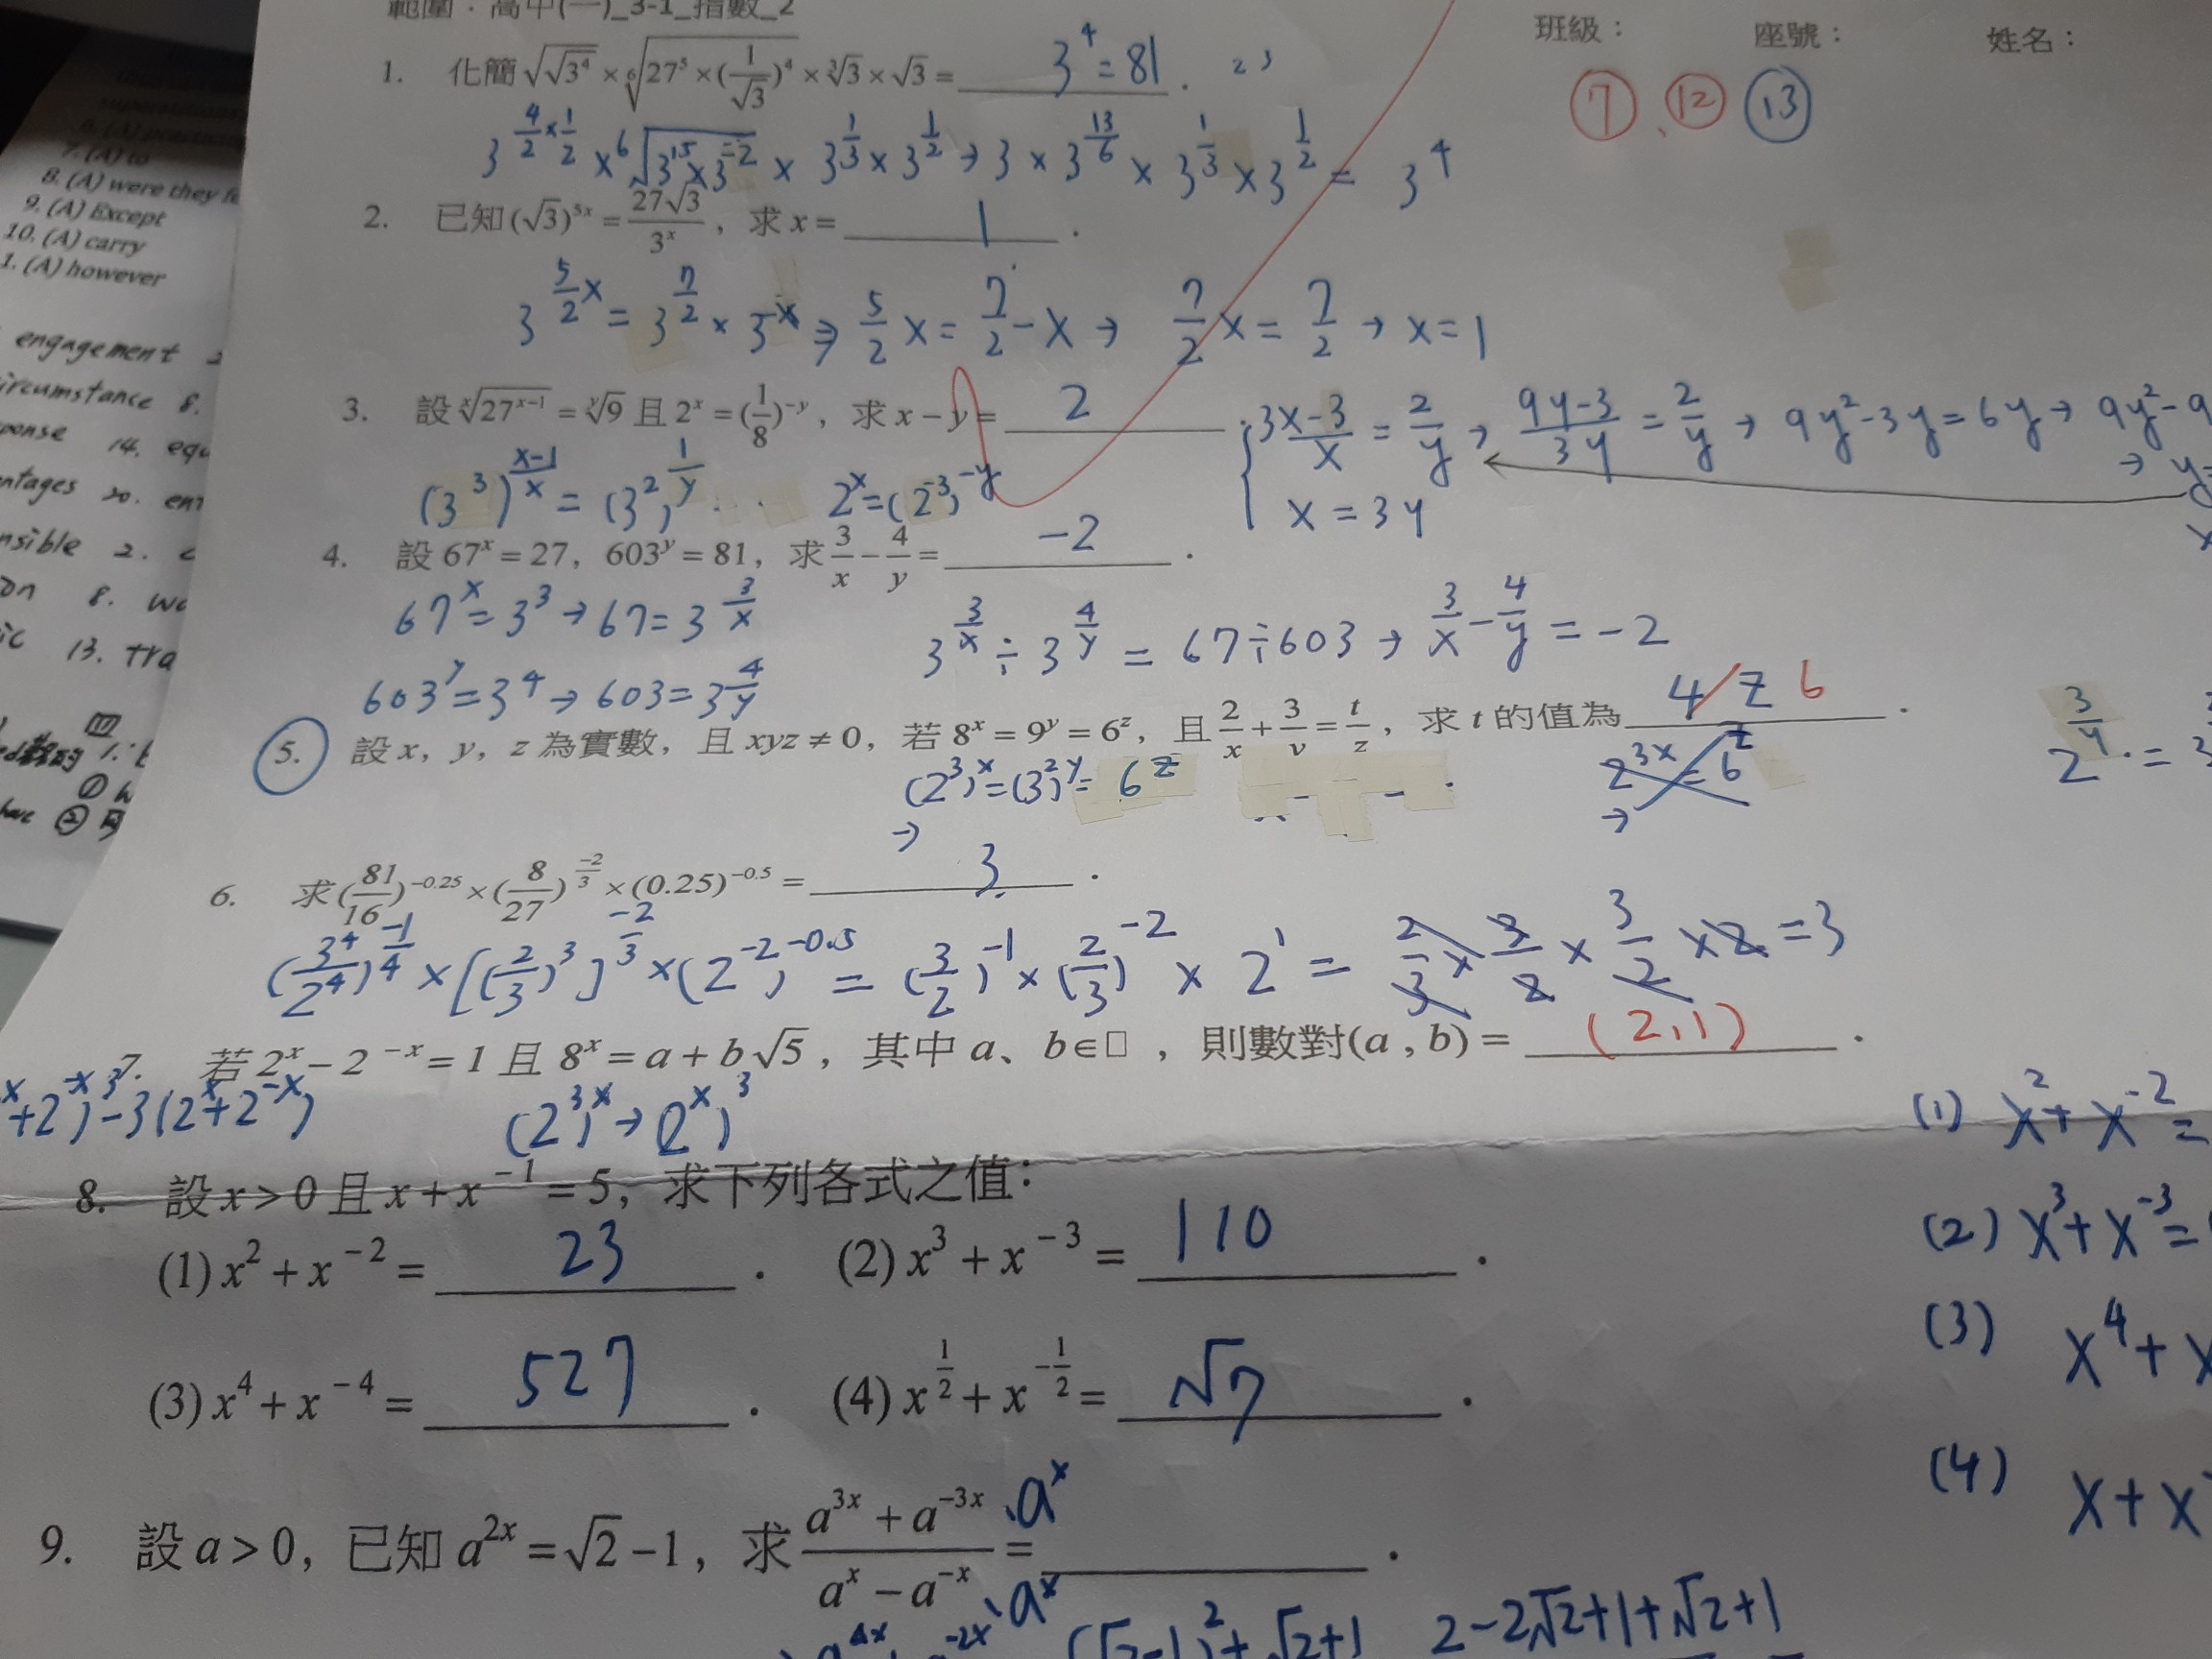 範圍：高中(一)_3-1_指數_2
班級： 座號： 姓名：
⑦、⑫ ⑬
1. 化簡√√3⁴ × ⁶√(27⁵ × (1/√3)⁴) × ³√3 × √3 = 3⁴ = 81 .
3^(4/2 × 1/2) × ⁶√(3¹⁵ × 3⁻²) × 3^(1/3) × 3^(1/2) → 3 × 3^(13/6) × 3^(1/3) × 3^(1/2) = 3⁴
2. 已知(√3)^(5x) = 27√3/3^x ，求 x = 1 .
3^(5/2 x) = 3^(7/2) × 3^(-x) → 5/2 x = 7/2 - x → 7/2 x = 7/2 → x = 1
3. 設 ˣ√(27^(x-1)) = ʸ√9 且 2^x = (1/8)^(-y)，求 x - y = 2 .
(3³)^((x-1)/x) = (3²)^(1/y) 2^x = (2⁻³)^(-y)
{ (3x-3)/x = 2/y → (9y-3)/3y = 2/y → 9y² - 3y = 6y → 9y² - 9
x = 3y
4. 設 67^x = 27，603^y = 81，求 3/x - 4/y = -2 .
67^x = 3³ → 67 = 3^(3/x)
3^(3/x) ÷ 3^(4/y) = 67 ÷ 603 → 3/x - 4/y = -2
603^y = 3⁴ → 603 = 3^(4/y)
5. 設 x，y，z 為實數，且 xyz ≠ 0，若 8^x = 9^y = 6^z，且 2/x + 3/y = t/z，求 t 的值為 4/z 6 .
(2³)^x = (3²)^y = 6^z
→
2^(3x) = 6^z
→
2^(3/y) = 3
6. 求(81/16)^(-0.25) × (8/27)^(-2/3) × (0.25)^(-0.5) = 3 .
(3⁴/2⁴)^(-1/4) × [(2/3)³]^(-2/3) × (2⁻²)^(-0.5) = (3/2)⁻¹ × (2/3)⁻² × 2¹ = 2/3 × 3/2 × 3/2 × 2 = 3
7. 若 2^x - 2^(-x) = 1 且 8^x = a + b√5，其中 a、b∈□ ，則數對(a , b) = (2,1) .
x + 2^(-x))³ - 3(2^x + 2^(-x))
(2³)^x → (2^x)³
8. 設 x > 0 且 x + x⁻¹ = 5，求下列各式之值：
(1) x² + x⁻² = 23 . (2) x³ + x⁻³ = 110 .
(3) x⁴ + x⁻⁴ = 527 . (4) x^(1/2) + x^(-1/2) = √7 .
(1) x² + x⁻² =
(2) x³ + x⁻³ =
(3) x⁴ + x
(4) x + x
9. 設 a > 0，已知 a^(2x) = √2 - 1，求 (a^(3x) + a^(-3x))/(a^x - a^(-x)) = .
·a^x
·a^x
a^(4x) + a^(-2x) (√2-1)² + √2+1 2 - 2√2 + 1 + √2 + 1
8. (A) were they
9. (A) Except
10. (A) carry
1. (A) however
7. (A) to
engagement
circumstance 8.
14.
20.
2.
8.
13.